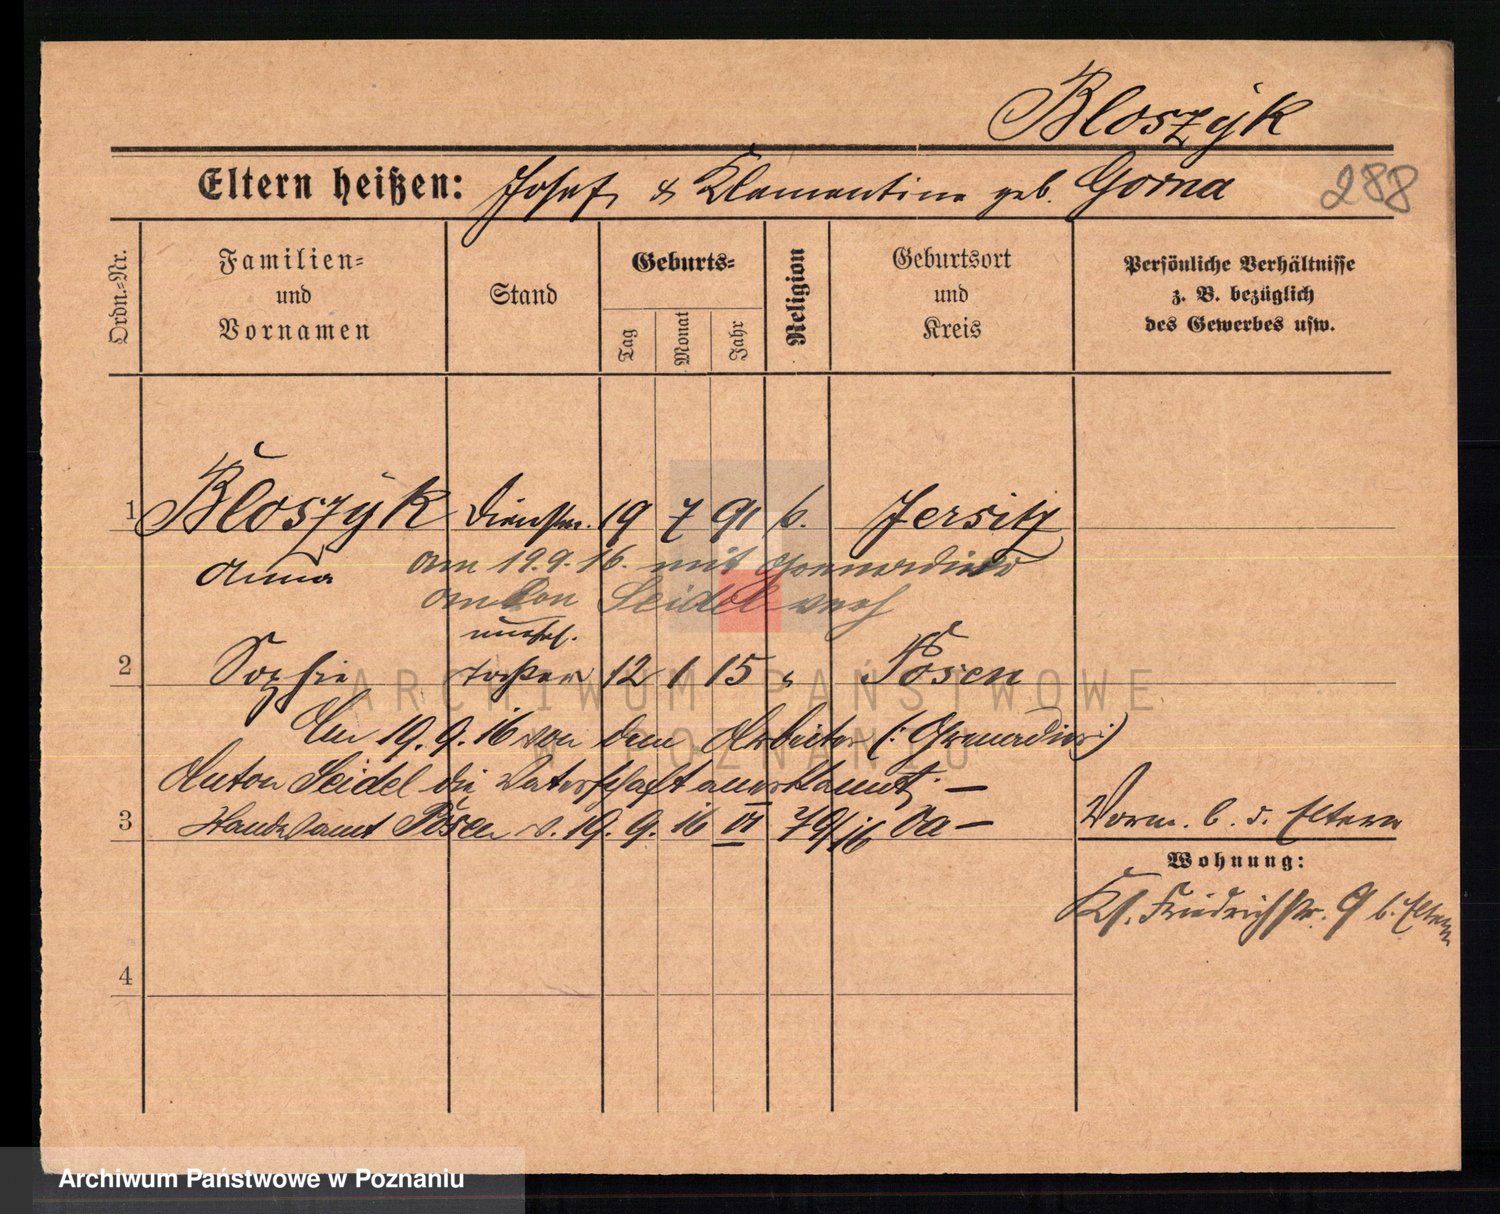 Bloszyk
Eltern heißen: Josef & Klementine geb. Gorna 288
Ordn.-Nr.
Familien- und Vornamen
Stand
Geburts-
Tag
Monat
Jahr
Religion
Geburtsort und Kreis
Persönliche Verhältnisse z. B. bezüglich des Gewerbes usw.
1 Bloszyk Dienstm. 19 7 91 k. Jersitz
Anna am 19.9.16. mit Grenadier
Anton Seidel verh
unehel.
2 Sophie Tochter 12 1 15 " Posen
Am 19.9.16 von dem Arbeiter (: Grenadier :)
Anton Seidel die Vaterschaft anerkannt. —
3 Standesamt Posen v. 19. 9. 16 VI 79/16 Oa —
Vorm. b. d. Eltern
Wohnung:
Kl. Friedrichstr. 9 b. Eltern
4
ARCHIWUM PAŃSTWOWE
W POZNANIU
Archiwum Państwowe w Poznaniu